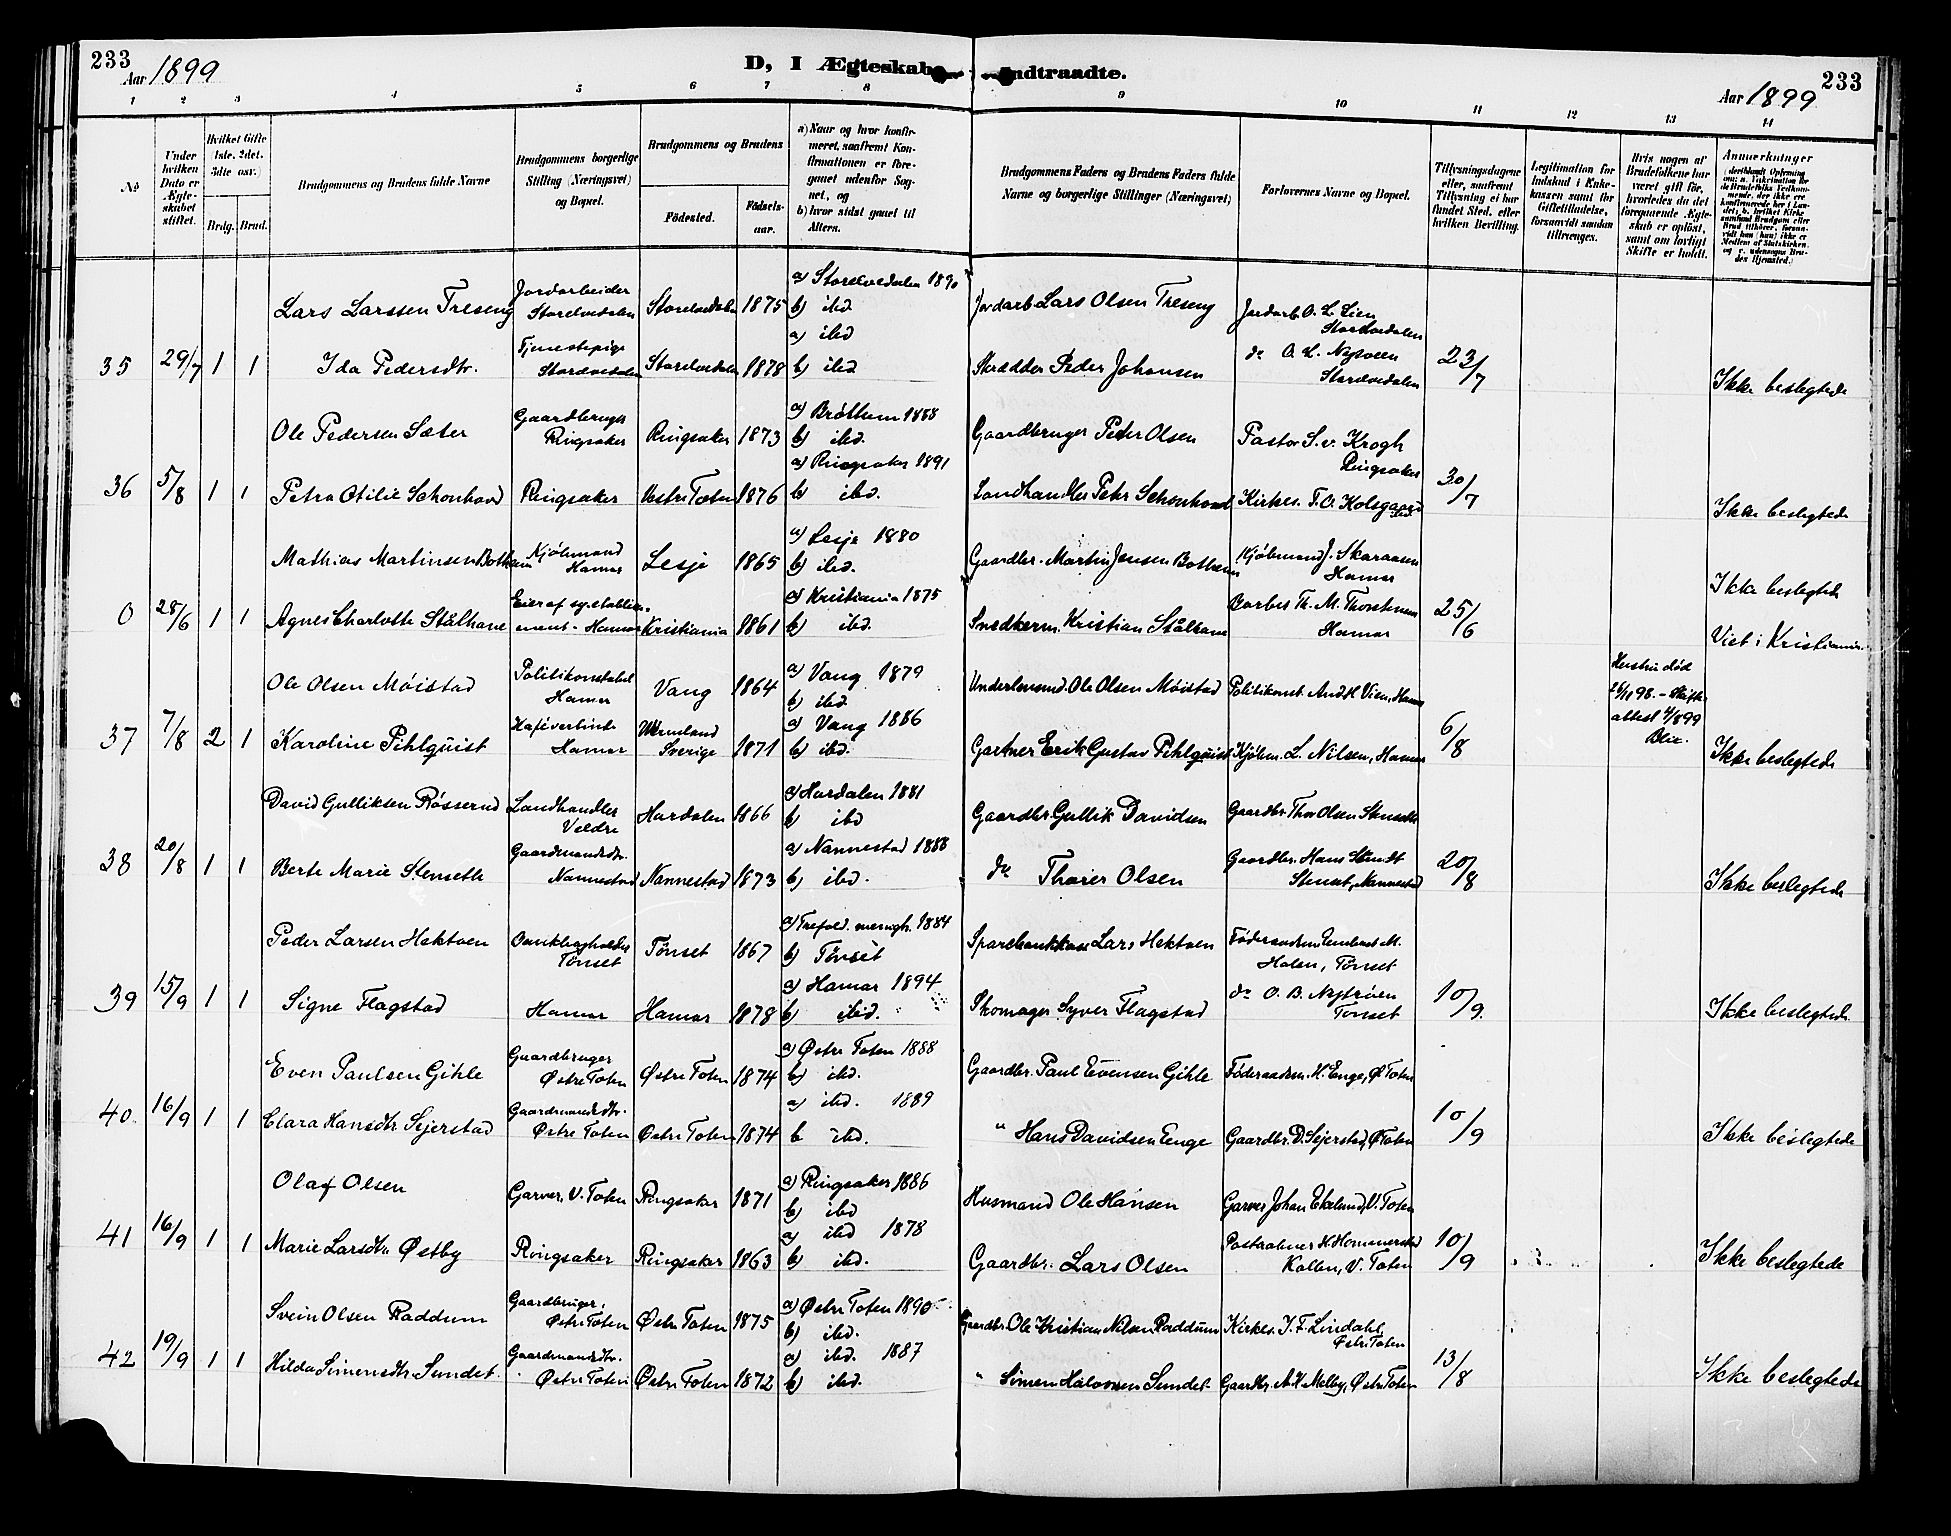 233
Aar 1899
D, I Ægteskab Indtraadte.
233
Aar 1899
1 2 3 4 5 6 7 8 9 10 11 12 13 14
No
Under hvilken Dato er Ægteskabet stiftet.
Hvilket Gifte (1ste, 2det, 3die osv.)
Brdg. Brud.
Brudgommens og Brudens fulde Navne
Brudgommens borgerlige Stilling (Næringsvei) og Bopæl.
Brudgommens og Brudens
Fødested.
Fødselsaar.
a) Naar og hvor konfirmeret, saafremt Konfirmationen er foregaaet udenfor Sognet, og
b) hvor sidst gaaet til Alters.
Brudgommens Faders og Brudens Faders fulde Navne og borgerlige Stillinger (Næringsvei)
Forlovernes Navne og Bopæl.
Tillysningsdagene eller, saafremt Tillysning ei har fundet Sted, efter hvilken Bevilling.
Legitimation for Indskud i Enkekassen samt for Giftetilladelse, forsaavidt saadan tiltrænges.
Hvis nogen af Brudefolkene har været gift før, hvorledes da det foregaaende Ægteskab er opløst, samt om lovligt Skifte er holdt.
Anmærkninger
Lars Larssen Treseng Jordarbeider Storelvedalen Storelvedalen 1875 a) Storelvedalen 1890 b) ibd Jordarb Lars Olsen Treseng Jordarb. O. L. Lien Storelvedalen
35 29/7 1 1 Ida Pedersdtr. Tjenestepige Storelvedalen Storelvedalen 1878 a) ibd b) ibd Skrædder Peder Johansen do O. L. Nysveen Storelvedalen 23/7 Ikke beslegtede
Ole Pedersen Sæter Gaardbruger Ringsaker Ringsaker 1873 a) Brøttum 1888 b) ibd. Gaardbruger Peder Olsen Pastor S. v. Krogh Ringsaker
36 5/8 1 1 Petra Otilie Schonhovd Ringsaker Vestre Toten 1876 a) Ringsaker 1891 b) ibd. Landhandler Petr Schonhovd Kirkes. T. O. Kolsgaard ibd 30/7 Ikke beslegtede
Mathias Martinsen Bottheim Kjøbmand Hamar Lesje 1865 a) Lesje 1880 b) ibd. Gaardbr. Martin Jensen Bottheim Kjøbmand J. Skaraasen Hamar
0 28/6 1 1 Agnes Charlotte Stålhane Eier af sy-etablissement - Hamar Kristiania 1861 a) Kristiania 1875 b) ibd. Snedkerm. Kristian Stålhane Barber Th. M. Thorstensen Hamar 25/6 Ikke beslegtede Viet i Kristiania.
Ole Olsen Møistad Politikonstabel Hamar Vang 1864 a) Vang 1879 b) ibd. Ole Olsen Møistad Politikonst. And H. Vien, Hamar Hustru død 98. - Skifteattest 4/8 99 Blix.
37 7/8 2 1 Karoline Pihlquist Kaféværtinde Hamar Wermland Sverige 1871 a) Vang 1886 b) ibd. Gartner Erik Gustav Pihlquist Kjøbm. L. Nilsen, Hamar 6/8 Ikke beslegtede
David Gulliksen Røsserud Landhandler Veldre Hurdalen 1866 a) Hurdalen 1881 b) ibd Gaardbr. Gullik Davidsen Gaardbr. Thor Olsen Stenseth
38 20/8 1 1 Berte Marie Stenseth Gaardmandsdtr. Nannestad Nannestad 1873 a) Nannestad 1888 b) ibd. do Thorer Olsen Gaardbr. Hans Stenset, Nannestad 20/8 Ikke beslegtede
Peder Larsen Hektoen Tønset Tønset 1867 a) Trefold. menigh. 1884 b) Tønset Sparebankkass Lars Hektoen Føderaadsm Halen, Tønset
39 15/9 1 1 Signe Flagstad Hamar Hamar 1878 a) Hamar 1894 b) ibid. Skomager Syver Flagstad do O. B. Nytrøen Tønset 10/9. Ikke beslegtede.
Even Paulsen Gihle Gaardbruger Østre Toten Østre Toten 1874 a) Østre Toten 1888 b) ibd. Gaardbr. Paul Evensen Gihle Føderaadsm. H. Enge, Ø Toten
40. 16/9 1 1 Clara Hansdtr Sejerstad Gaardmandsdtr. Østre Toten Østre Toten 1874 a) ibd. 1889 b ibd. " Hans Davidsen Enge Gaardbr. D. Sejerstad, Ø Toten 10/9 Ikke beslegtede
Olaf Olsen Garver, V. Toten Ringsaker 1871 a) Ringsaker 1886 b) ibd Husmand Ole Hansen Garver Johan Ekelund, V. Toten
41 16/9 1 1 Marie Larsdtr Østby Ringsaker Ringsaker 1863 a) ibd 1878 b) ibd. Gaardbr. Lars Olsen Postaabner H Hommerstad Kolbu, V. Toten 10/9 Ikke beslegtede
Svein Olsen Raddum Gaardbruger, Østre Toten Østre Toten 1875 a) Østre Toten 1890 b) ibd. Gaardbr. Ole Kristian Nilsen Raddum Kirkes. J. F. Lindahl, Østre Toten
42 19/9 1 1 Hilda Simensdtr. Sundet. Gaardmandsdtr. Østre Toten Østre Toten 1872 a) ibd. 1887 b) ibd. " Simen Halvorsen Sundet. Gaardbr. A. H. Melby, Østre Toten 13/8 Ikke beslegtede